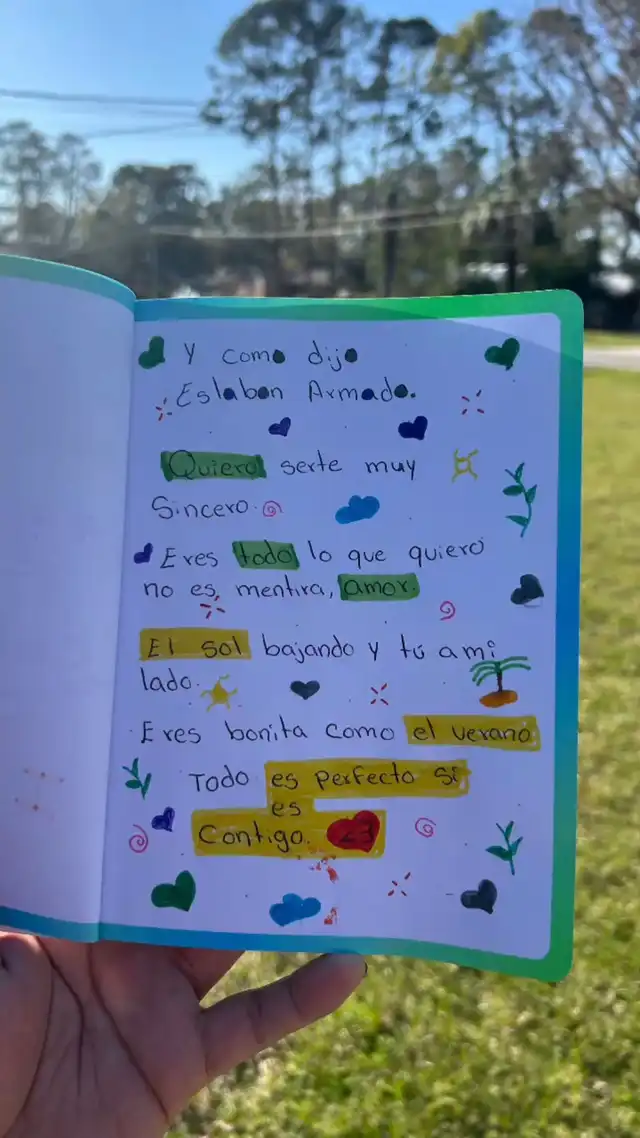 Y como dijo
Eslabon Armado.
Quiero serte muy
Sincero.
Eres todo lo que quiero
no es, mentira, amor.
El sol bajando y tu ami
lado.
Eres bonita como el verano
Todo es perfecto si
es
Contigo. <3